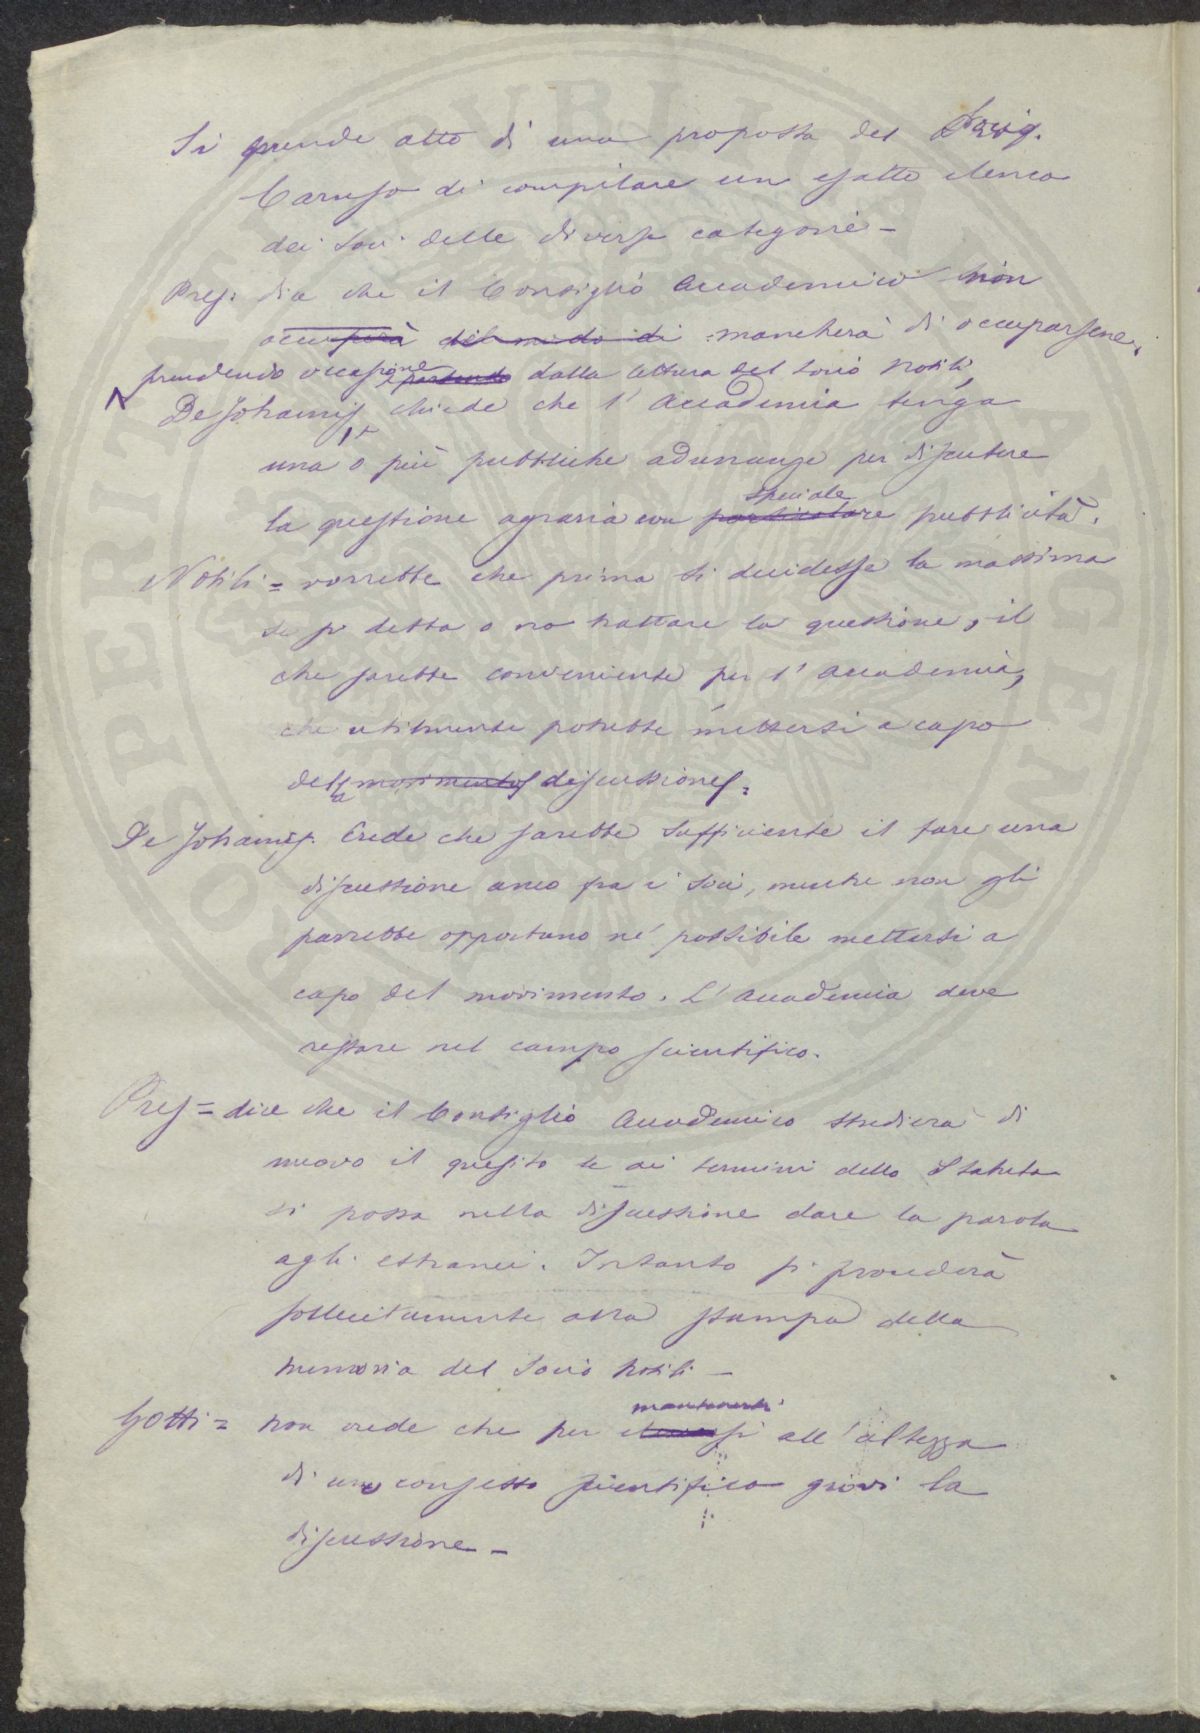 Si prende atto di una proposta del Sig.
Caruso di compilare un esatto elenco
dei Soci delle diverse categorie –
Pres: dice che il Consiglio Accademico non
occuperà del modo di mancherà di occuparsene.
prendendo occasione partendo dalla lettura del Socio Nobili,
De Johannis chiede che l'Accademia tenga
una o più pubbliche adunanze per discutere
speciale
la questione agraria con particolare pubblicità.
Nobili = vorrebbe che prima si decidesse la massima
se si debba o no trattare la questione, il
che sarebbe conveniente per l'Accademia,
che utilmente potrebbe mettersi a capo
della movimento discussione =
De Johannis. Crede che sarebbe sufficiente il fare una
discussione anco fra i Soci, mentre non gli
parrebbe opportuno né possibile mettersi a
capo del movimento. L'Accademia deve
restare nel campo scientifico.
Pres = dice che il Consiglio Accademico studierà di
nuovo il quesito se ai termini dello Statuto
si possa nella discussione dare la parola
agli estranei. Intanto si procederà
sollecitamente alla stampa della
memoria del Socio Nobili –
mantenersi
Gotti = non crede che per elevarsi all'altezza
di un consesso scientifico giovi la
discussione –